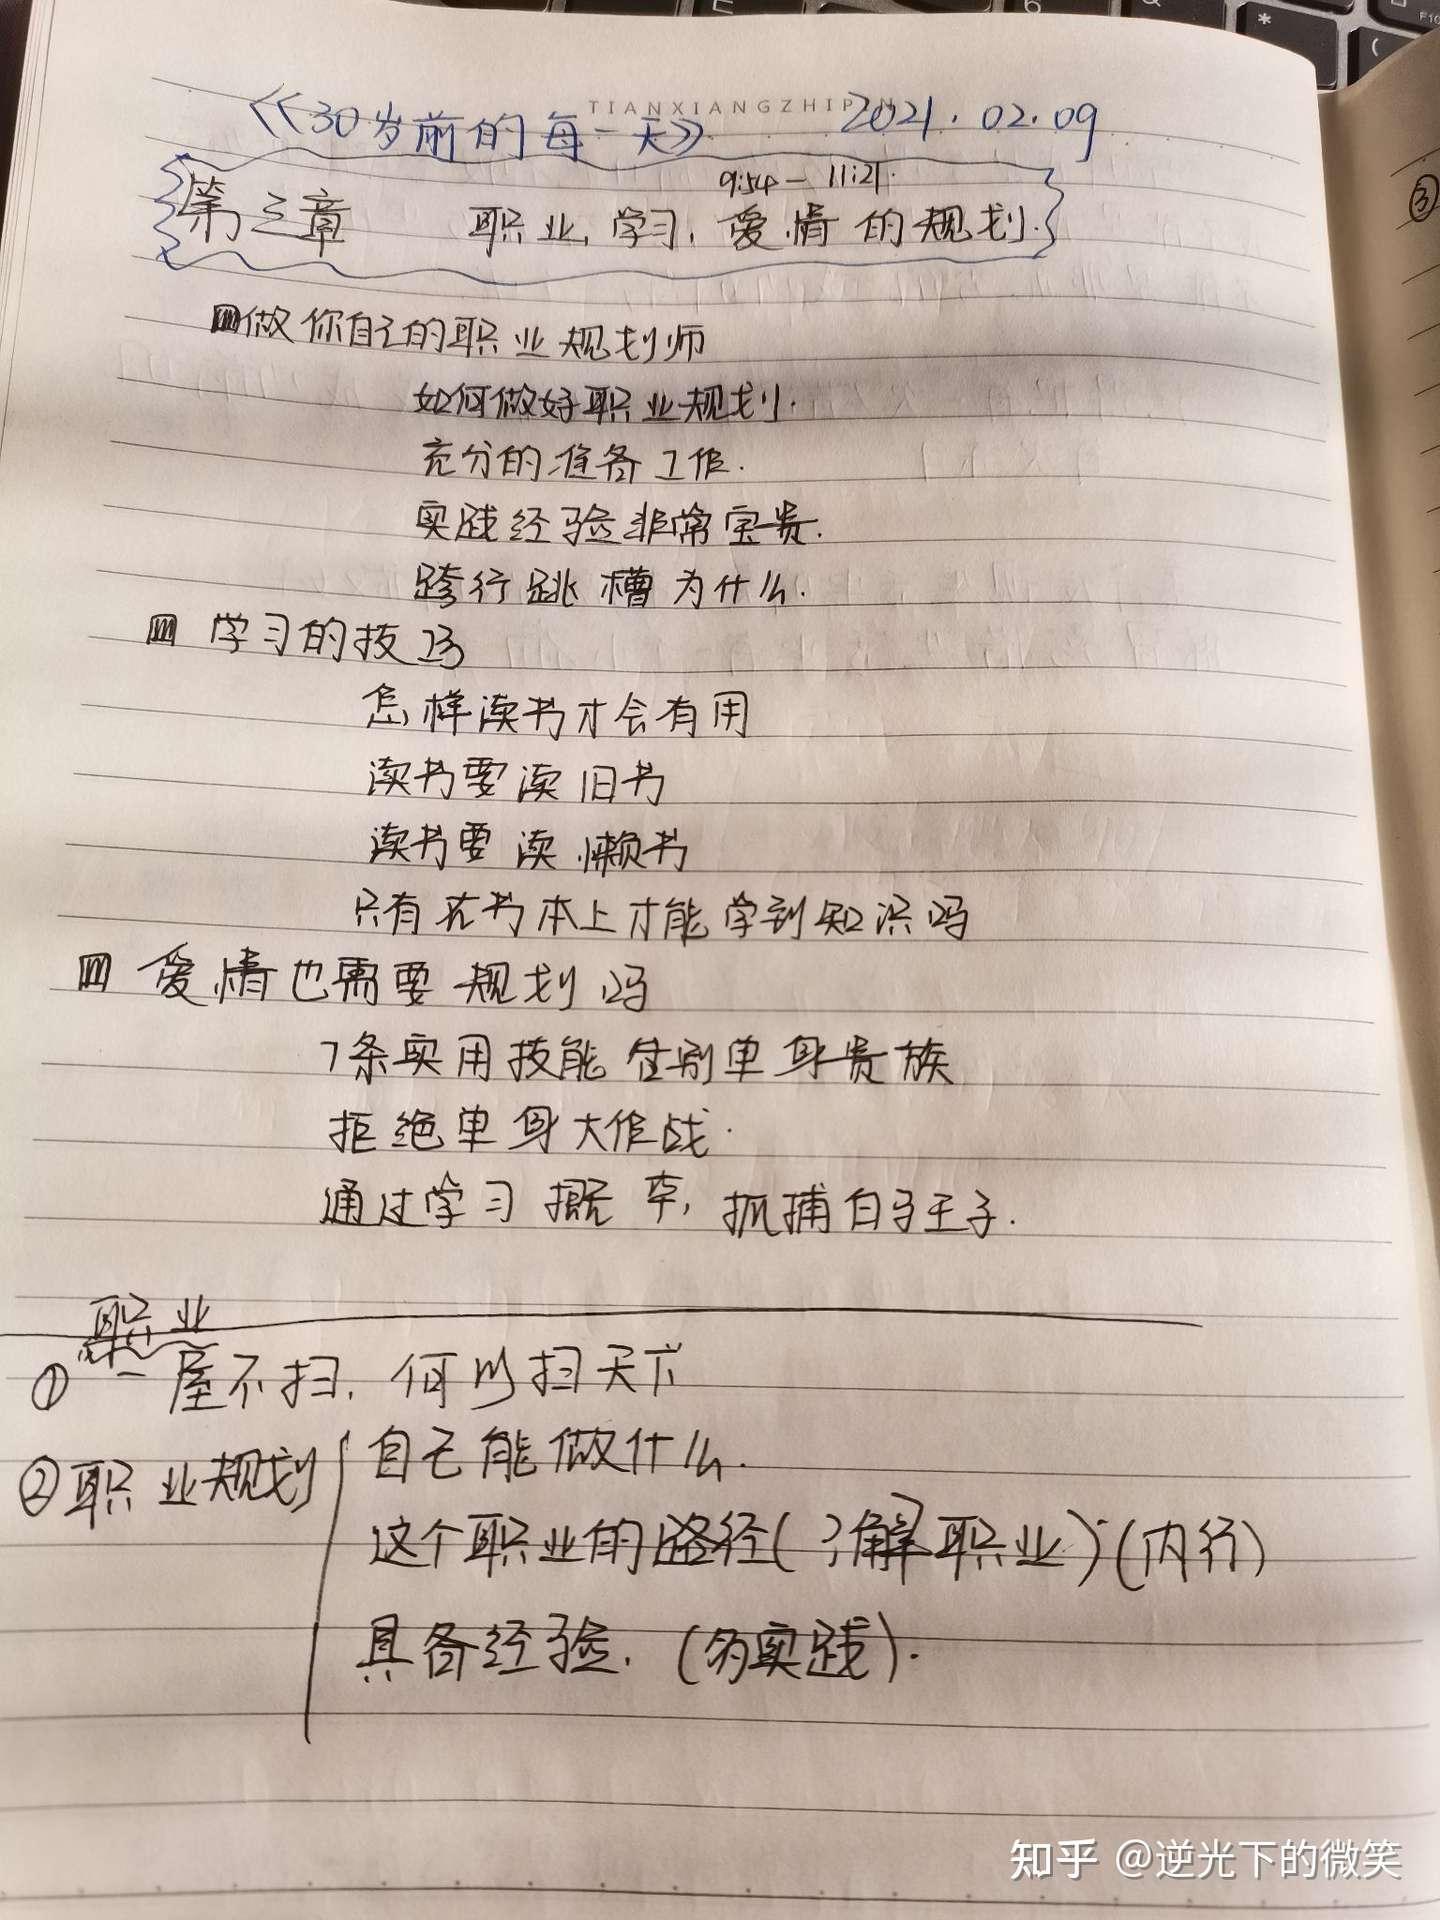 TIANXIANGZHIPIN
《30岁前的每一天》 2021.02.09
9:54-11:21.
第三章 职业,学习,爱情的规划.
做你自己的职业规划师
如何做好职业规划.
充分的准备工作.
实践经验非常宝贵.
跨行跳槽为什么.
学习的技巧
怎样读书才会有用
读书要读旧书
读书要读懒书
只有在书本上才能学到知识吗
爱情也需要规划吗
7条实用技能告别单身贵族
拒绝单身大作战.
通过学习概率,抓捕白马王子.
职业
① 一屋不扫,何以扫天下
②职业规划
自己能做什么.
这个职业的路径(了解职业).(内行)
具备经验.(多实践).
③
知乎 @逆光下的微笑